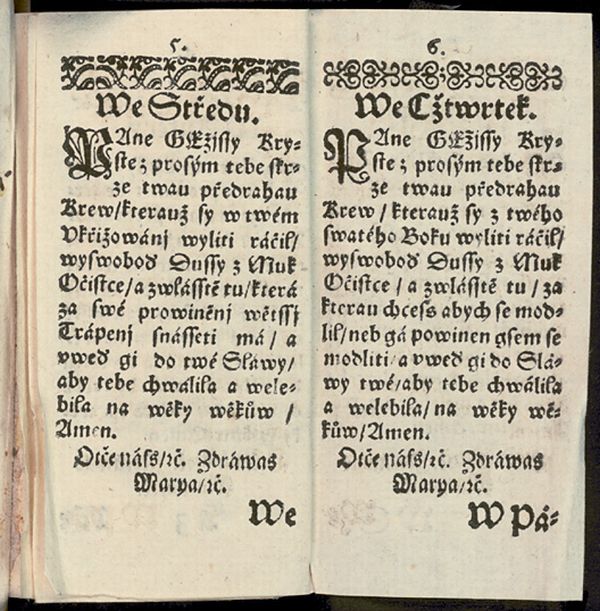 5.
We Středu.
PAne GEžissy Kry-
ste ; prosým tebe skr-
ze twau předrahau
Krew/kterauž sy w twém
Vkřižowánj wyliti ráčil/
wyswoboď Dussy z Muk
Očistce/a zwlásstě tu/která
za swé prowiněnj wětssj
Trápenj snásseti má/ a
vweď gi do twé Sláwy/
aby tebe chwálila a wele-
bila na wěky wěkůw /
Amen.
Otče náſs/ꝛč. Zdráwas
Marya/ꝛč.
We
6.
We Cžtwrtek.
PAne GEžissy Kry-
ste ; prosým tebe skr-
ze twau předrahau
Krew / kterauž sy z twého
swatého Boku wyliti ráčil/
wyswoboď Dussy z Muk
Očistce / a zwlásstě tu / za
kterau chceſs abych se mod-
lil/neb gá powinen gsem se
modliti/a vweď gi do Slá-
wy twé/aby tebe chwálila
a welebila/na wěky wě-
kůw/Amen.
Otče náſs/ꝛč. Zdráwas
Marya/ꝛč.
W Pá-